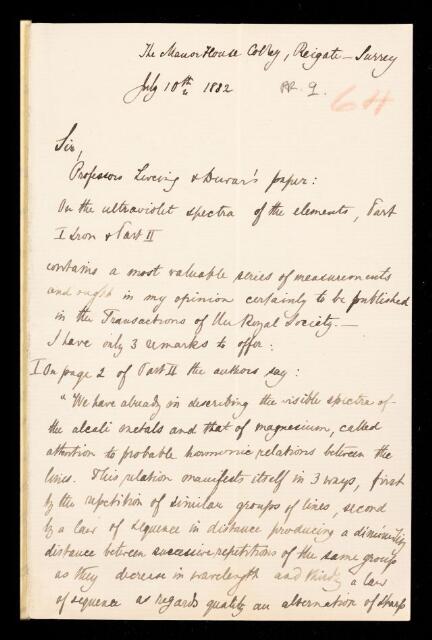 The Manor House Colley, Reigate – Surrey
July 10th 1882
RR. 9.
64
Sir,
Professors Liveing & Dewar's paper:
On the ultraviolet spectra of the elements, Part
I Iron & Part II
contains a most valuable series of measurements
and ought in my opinion certainly to be published
in the Transactions of the Royal Society. —
I have only 3 remarks to offer:
I On page 2 of Part II the authors say:
"We have already in describing the visible spectra of
the alcali metals and that of magnesium, called
attention to probable harmonic relations between the
lines. This relation manifests itself in 3 ways, first
by the repetition of similar groups of lines, second
by a law of sequence in distance producing a diminishing
distance between successive repetitions of the same group
as they decrease in wavelength and thirdly a law
of sequence as regards quality an alternation of sharp